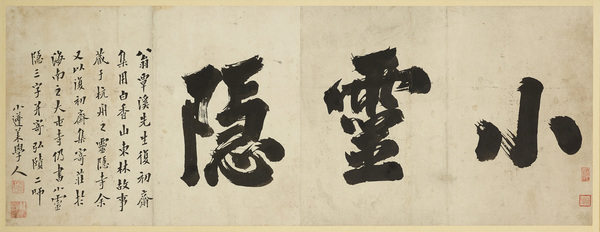 小靈隱
翁覃溪先生復初齋
集用白香山東林故事
藏于杭州之靈隱寺余
又以復初齋集寄於
海南之大寺仍書小靈
隱三字寄弘二師
小蓬萊學人